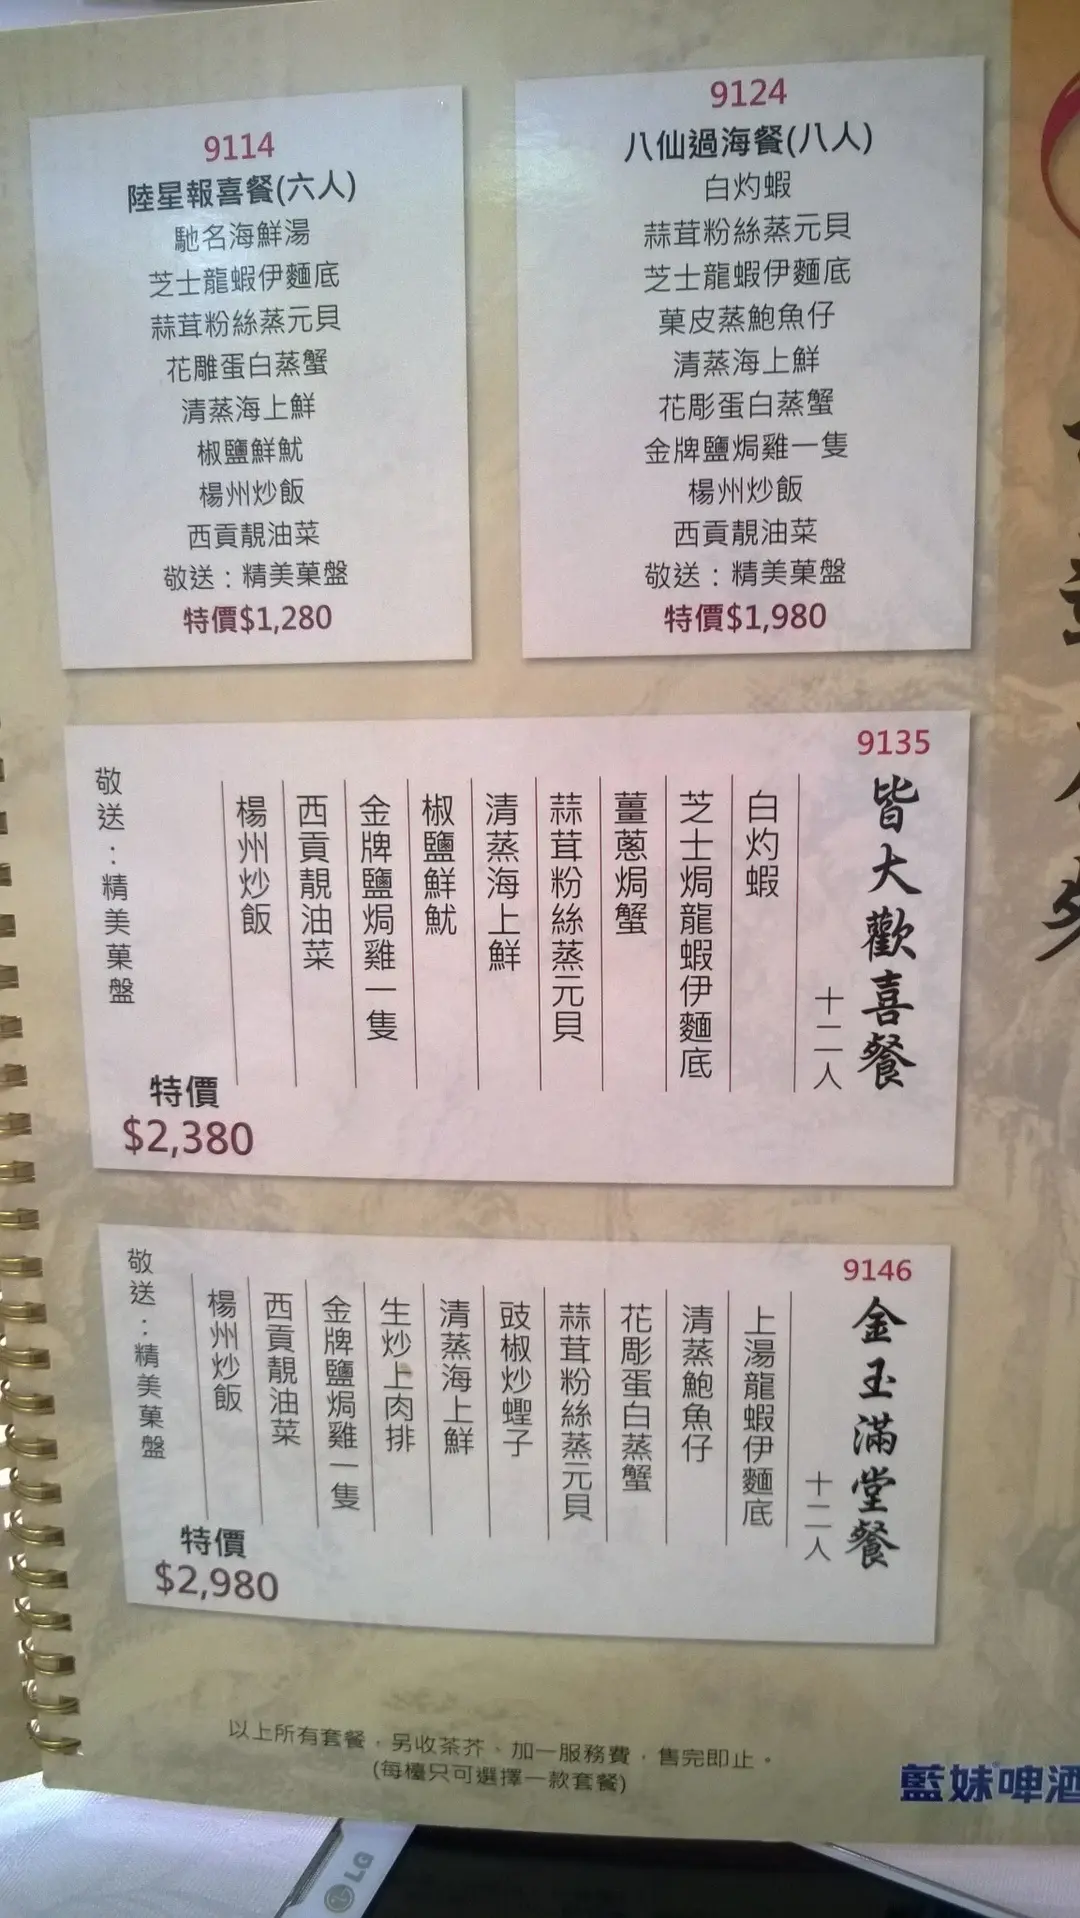 9114
陸星報喜餐(六人)
馳名海鮮湯
芝士龍蝦伊麵底
蒜茸粉絲蒸元貝
花雕蛋白蒸蟹
清蒸海上鮮
椒鹽鮮魷
楊州炒飯
西貢靚油菜
敬送：精美菓盤
特價$1,280
9124
八仙過海餐(八人)
白灼蝦
蒜茸粉絲蒸元貝
芝士龍蝦伊麵底
菓皮蒸鮑魚仔
清蒸海上鮮
花彫蛋白蒸蟹
金牌鹽焗雞一隻
楊州炒飯
西貢靚油菜
敬送：精美菓盤
特價$1,980
9135
皆大歡喜餐
十二人
白灼蝦
芝士焗龍蝦伊麵底
薑蔥焗蟹
蒜茸粉絲蒸元貝
清蒸海上鮮
椒鹽鮮魷
金牌鹽焗雞一隻
西貢靚油菜
楊州炒飯
敬送：精美菓盤
特價
$2,380
9146
金玉滿堂餐
十二人
上湯龍蝦伊麵底
清蒸鮑魚仔
花彫蛋白蒸蟹
蒜茸粉絲蒸元貝
豉椒炒蟶子
清蒸海上鮮
生炒上肉排
金牌鹽焗雞一隻
西貢靚油菜
楊州炒飯
敬送：精美菓盤
特價
$2,980
以上所有套餐，另收茶芥、加一服務費，售完即止。
(每檯只可選擇一款套餐)
藍妹啤酒
LG